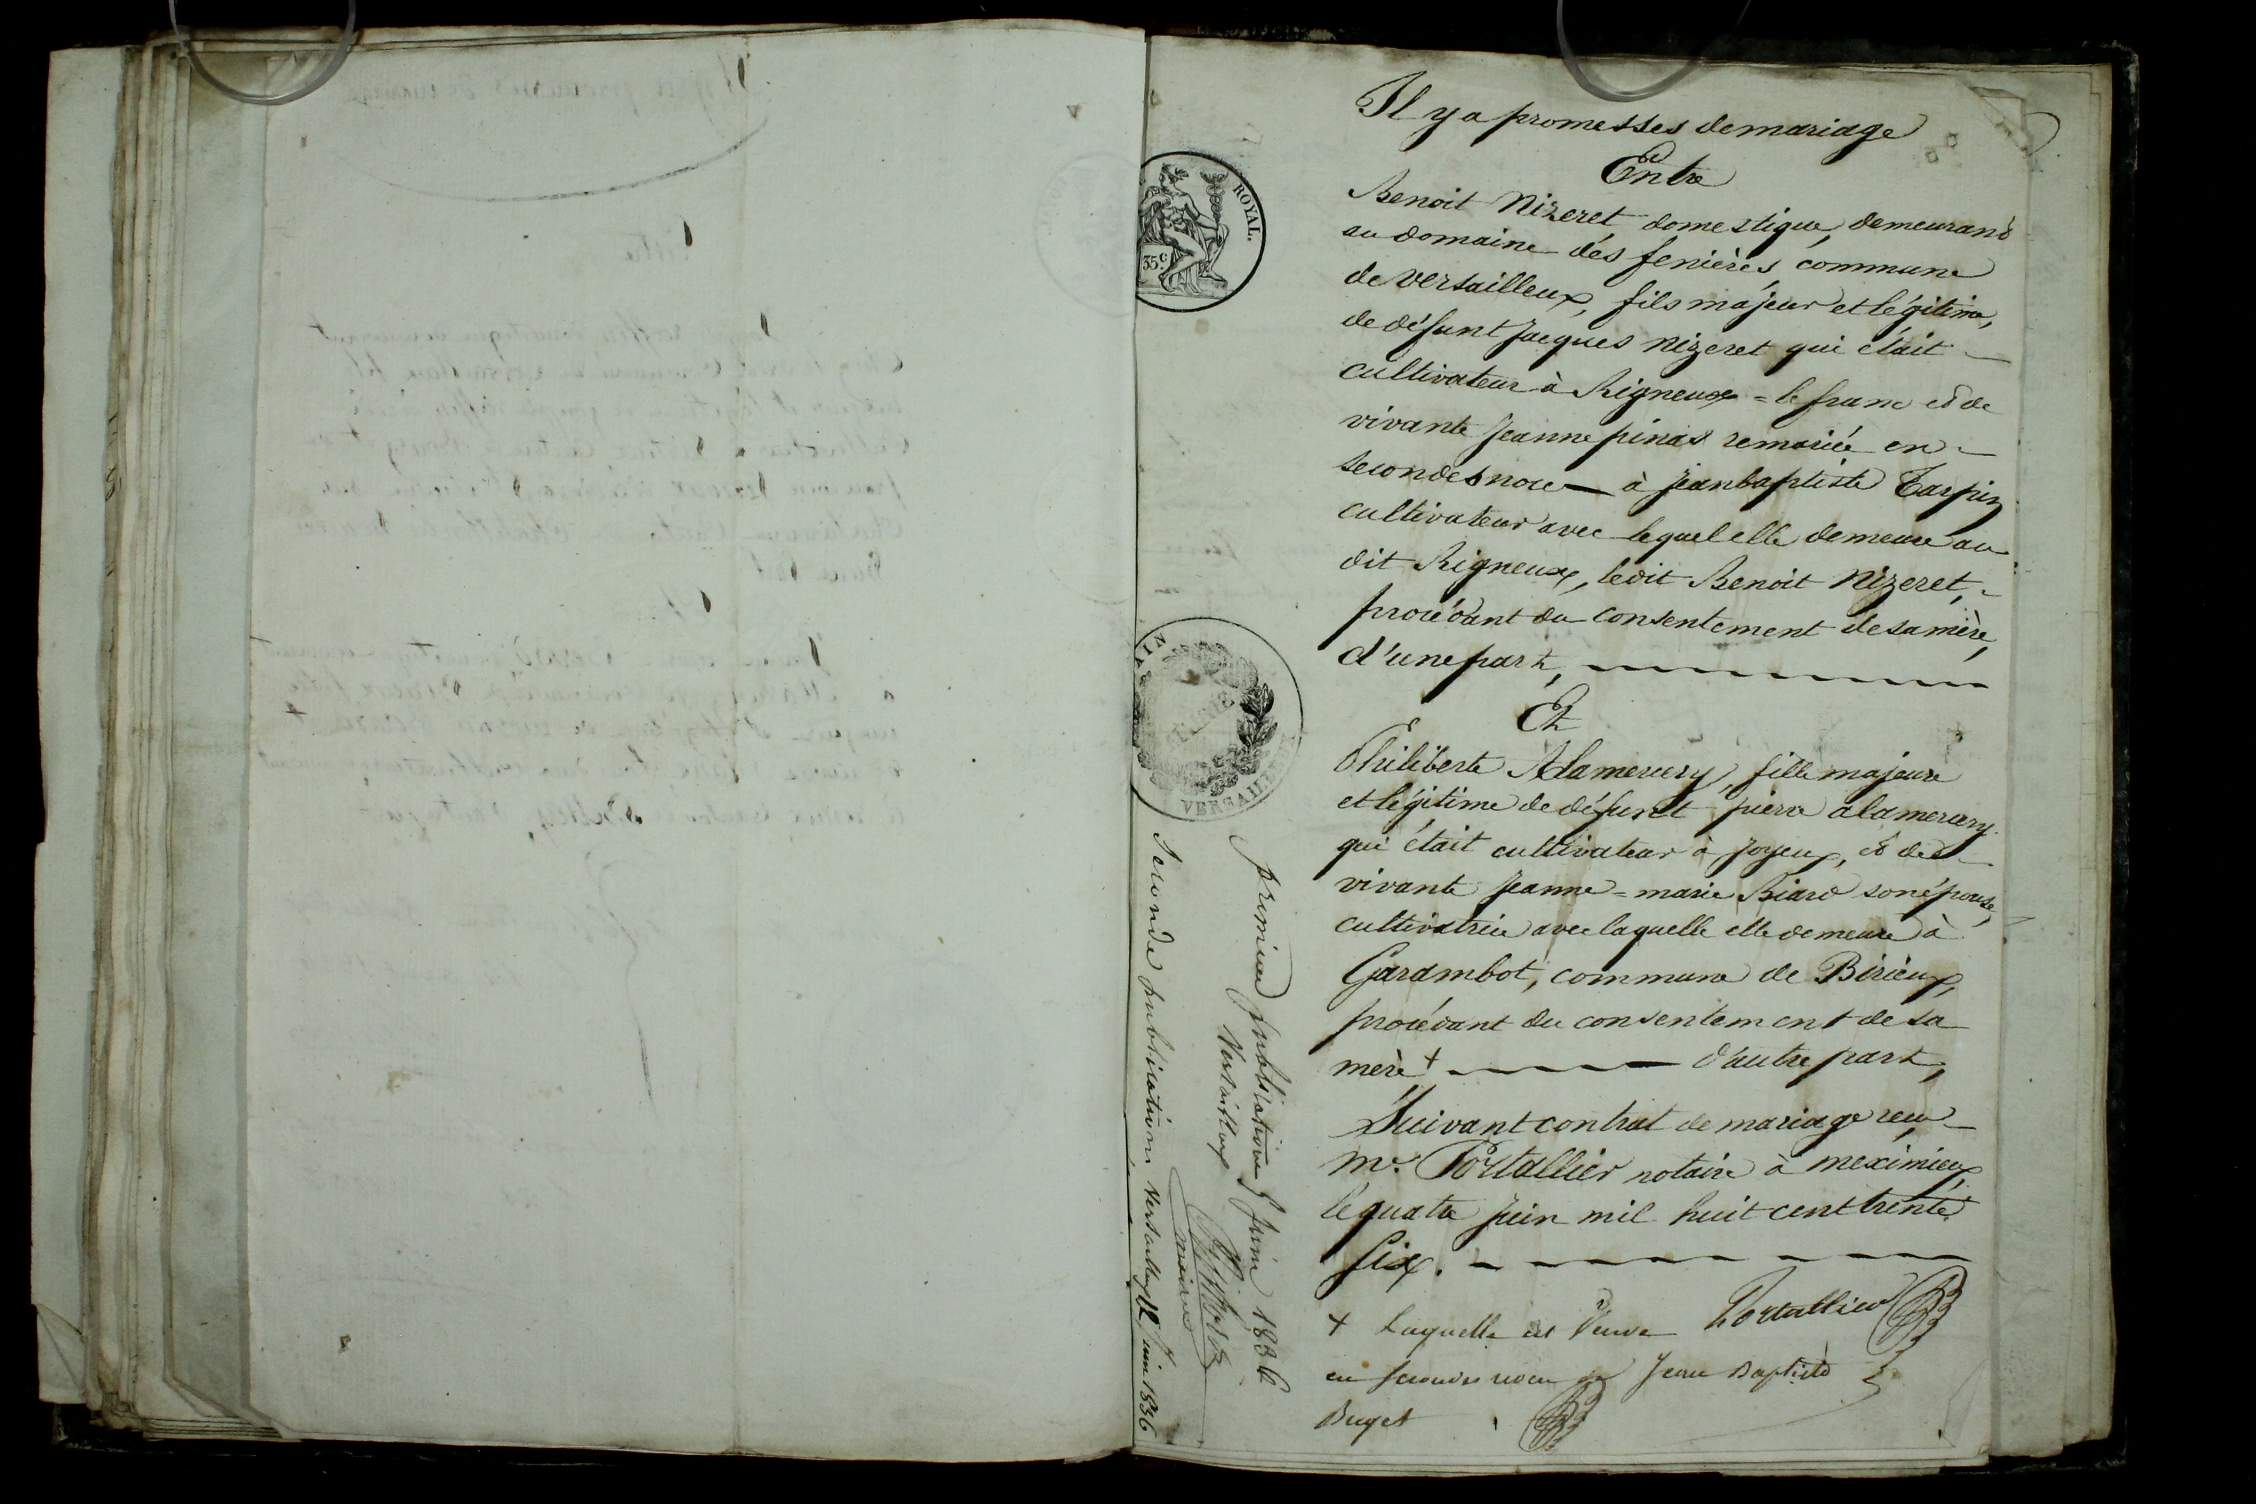 Il y a promesses de mariage
Entre
Benoit Nizeret domestique, demeurant
au domaine dés fenières, commune
de versailleux, fils majeur et légitime,
de défunt Jacques Nizeret qui était
cultivateur à Rigneux = le franc et de
vivante Jeanne pinas remariée en
secondes noce à Jean baptiste Tarpin
cultivateur avec lequel elle demeure au
dit Rigneux, ledit Benoit Nizeret,
procédant du consentement de sa mère,
d'une part,
Et
Philiberte Alamercery, fille majeure
et légitime de défunt pierre alamercery
qui était cultivateur à Joyeux, et de
vivante Jeanne = marie Biard son épouse,
cultivatrice avec laquelle elle demeure à
Garambot, commune de Birieux,
procédant du consentement de sa
mère + d'autre part,
Suivant contrat de mariage reçu
Me. Portallier notaire à meximieux
le quatre juin mil huit cent trente
six.
+ Laquelle est Veuve Portallier
en secondes noces de Jean Baptiste
Buget
ROYAL.
35 c
MAIRIE
VERSAILLEUX
première publication 5 Juin 1836
Versailleux
maire
Seconde publication versailleux 12 Juin 1836